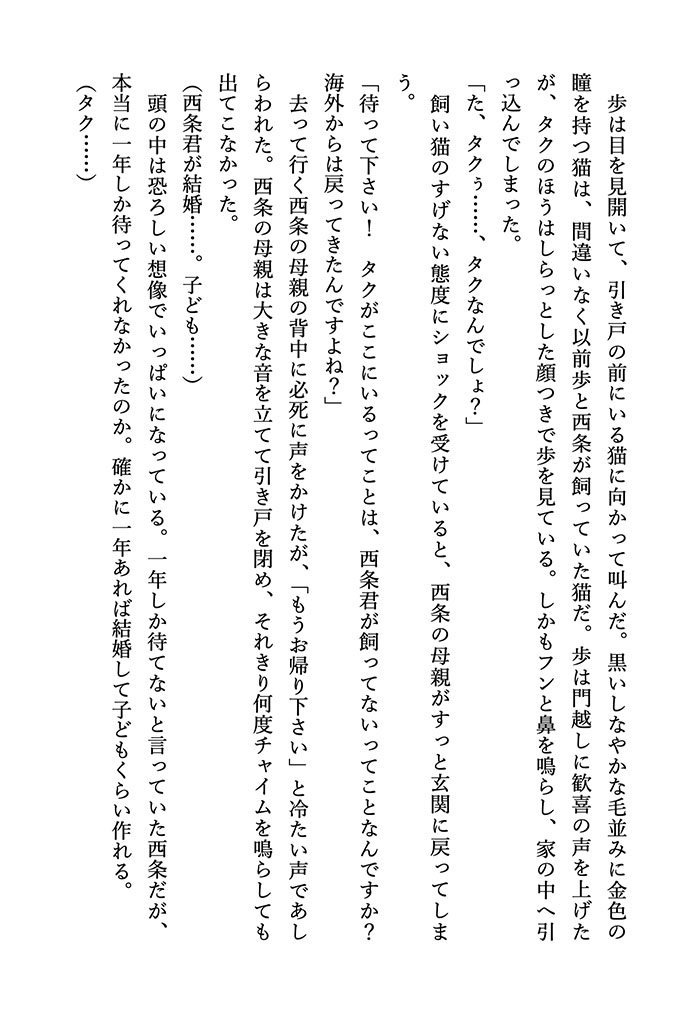 歩は目を見開いて、引き戸の前にいる猫に向かって叫んだ。黒いしなやかな毛並みに金色の
瞳を持つ猫は、間違いなく以前歩と西条が飼っていた猫だ。歩は門越しに歓喜の声を上げた
が、タクのほうはしらっとした顔つきで歩を見ている。しかもフンと鼻を鳴らし、家の中へ引
っ込んでしまった。
「た、タクぅ……、タクなんでしょ？」
飼い猫のすげない態度にショックを受けていると、西条の母親がすっと玄関に戻ってしま
う。
「待って下さい！　タクがここにいるってことは、西条君が飼ってないってことなんですか？
海外からは戻ってきたんですよね？」
去って行く西条の母親の背中に必死に声をかけたが、「もうお帰り下さい」と冷たい声であし
らわれた。西条の母親は大きな音を立てて引き戸を閉め、それきり何度チャイムを鳴らしても
出てこなかった。
（西条君が結婚……。子ども……）
頭の中は恐ろしい想像でいっぱいになっている。一年しか待てないと言っていた西条だが、
本当に一年しか待ってくれなかったのか。確かに一年あれば結婚して子どもくらい作れる。
（タク……）